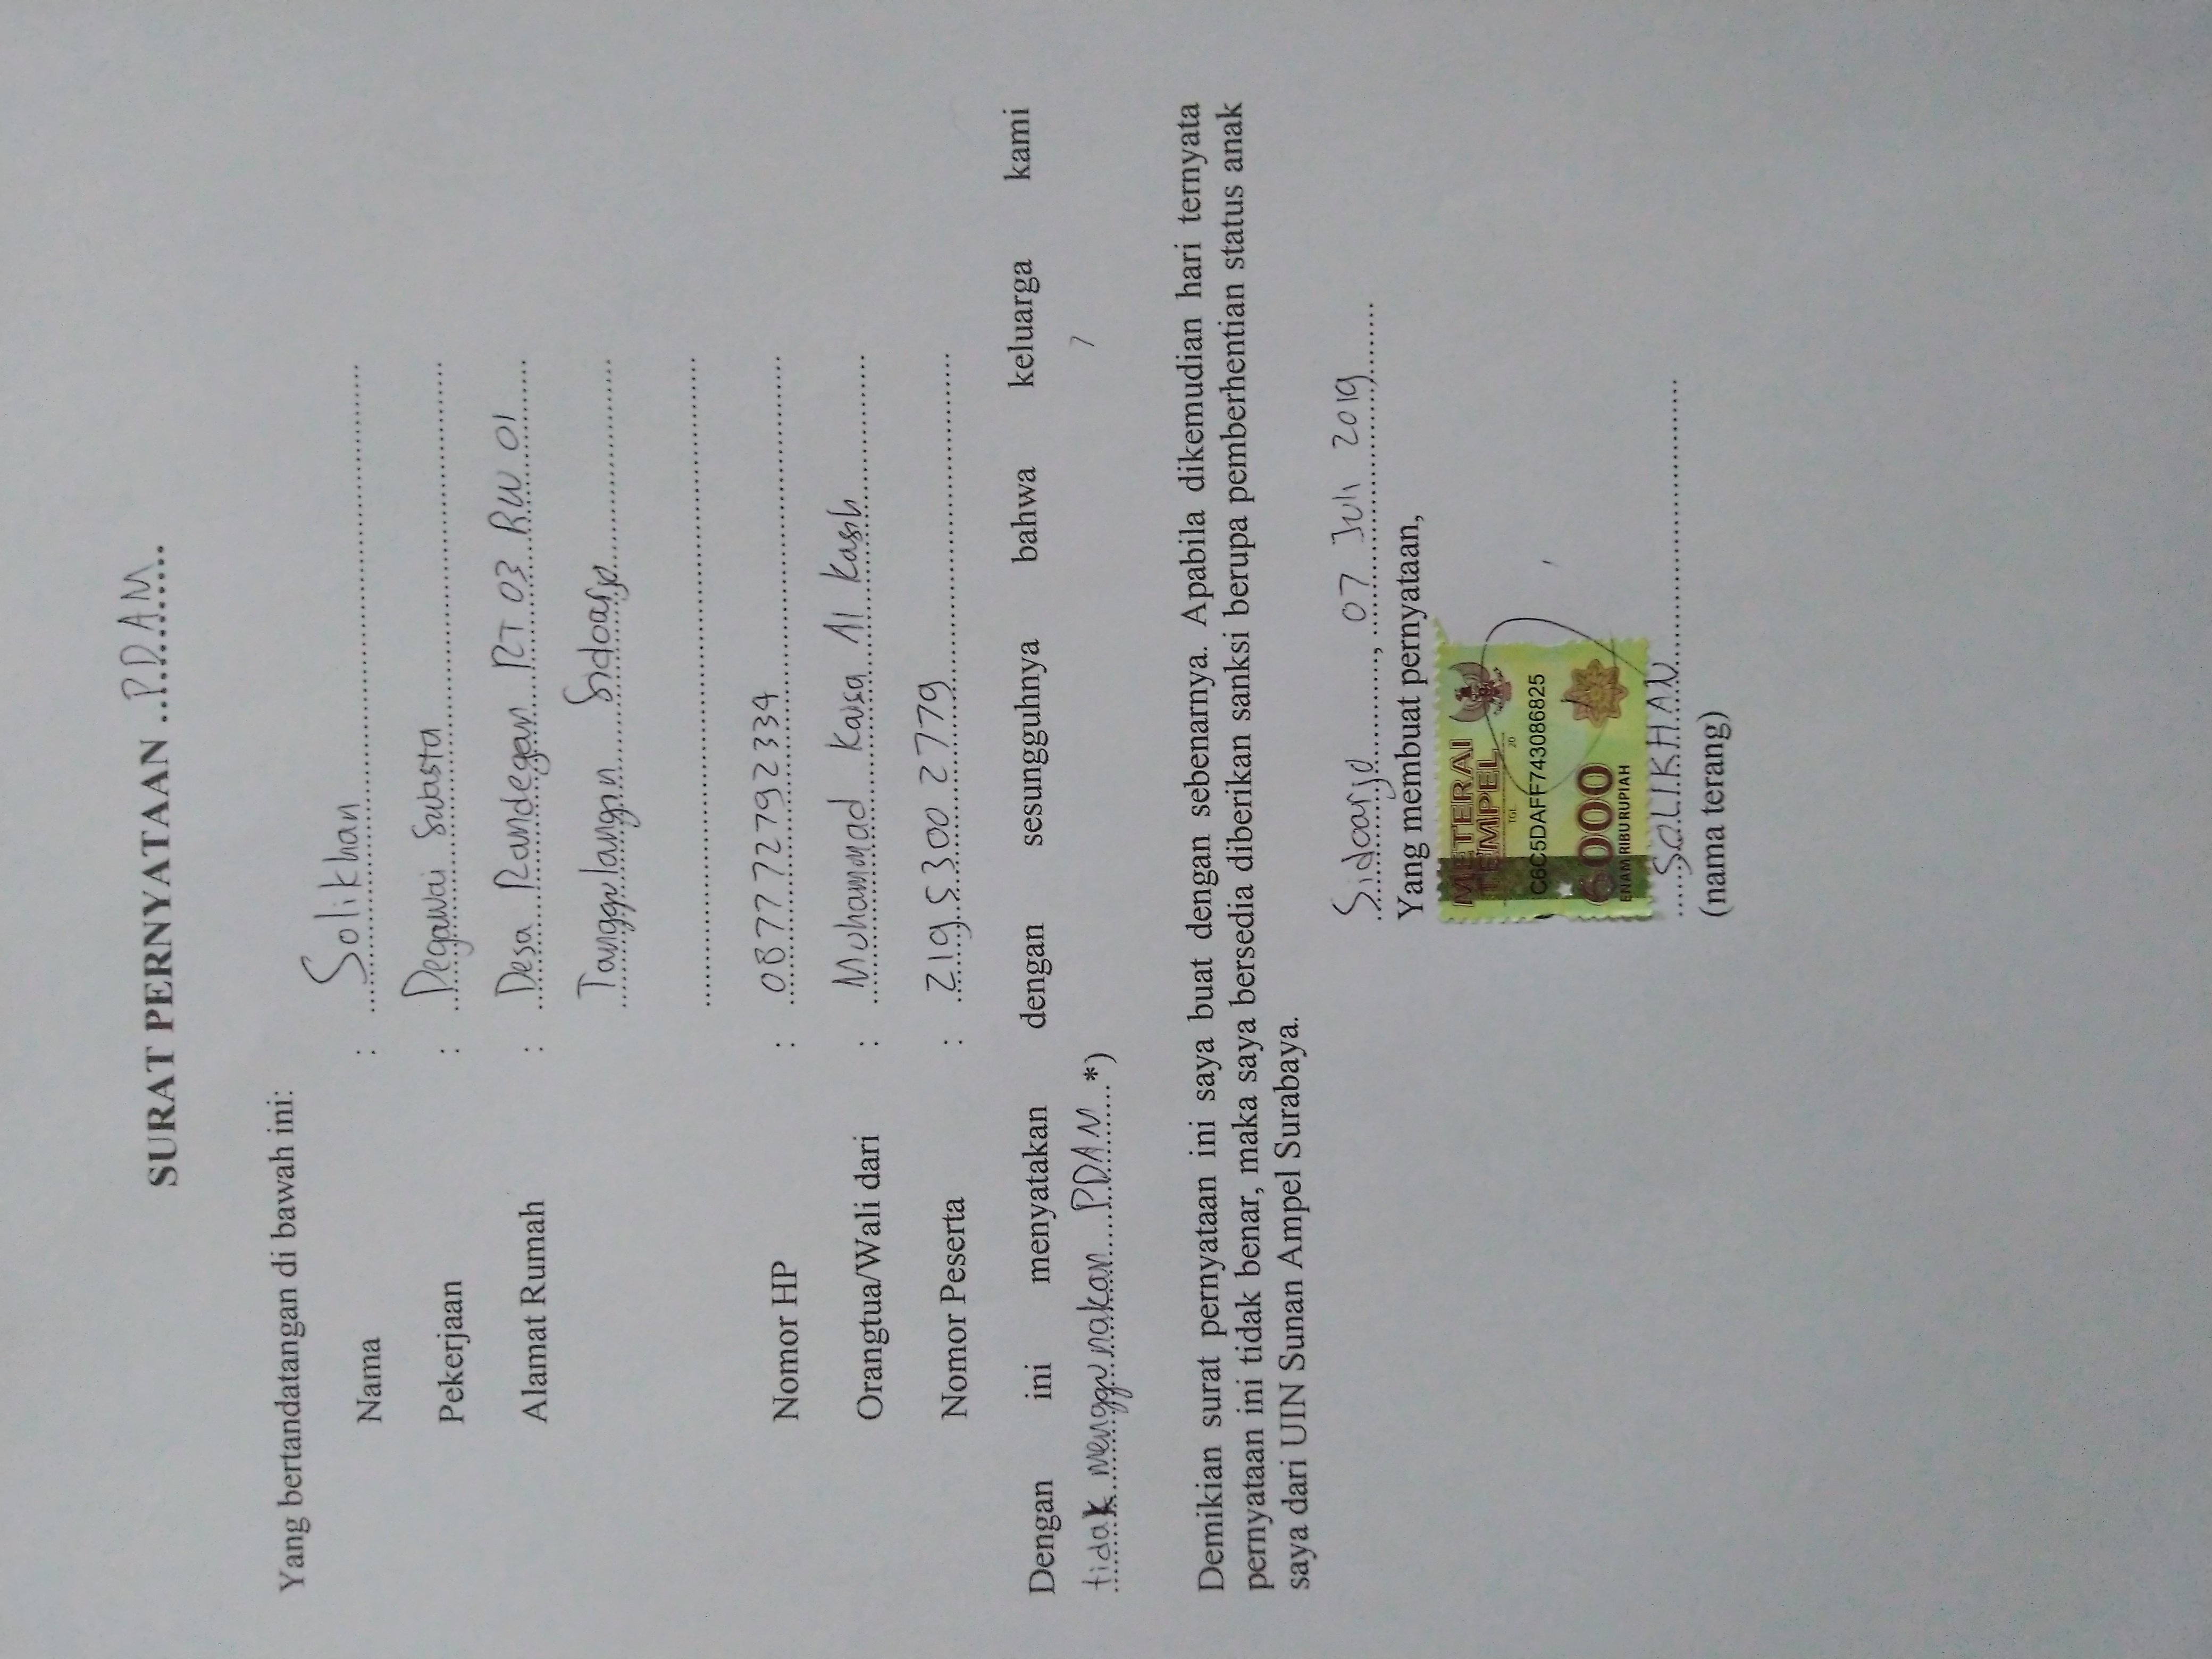 SURAT PERNYATAAN ..PDAM......
Yang bertandatangan di bawah ini:
Nama : Solikhan
Pekerjaan : Pegawai Swasta
Alamat Rumah : Desa Randegan RT 03 RW 01
Tanggulangin Sidoarjo
Nomor HP : 087772792334
Orangtua/Wali dari : Muhammad Kassa Al Kasib
Nomor Peserta : 2195300 2779
Dengan ini menyatakan dengan sesungguhnya bahwa keluarga kami
tidak menggunakan PDAM *)
Demikian surat pernyataan ini saya buat dengan sebenarnya. Apabila dikemudian hari ternyata
pernyataan ini tidak benar, maka saya bersedia diberikan sanksi berupa pemberhentian status anak
saya dari UIN Sunan Ampel Surabaya.
Sidoarjo, 07 Juli 2019
Yang membuat pernyataan,
METERAI
TEMPEL
TGL 20
C6C5DAFF743086825
6000
ENAM RIBU RUPIAH
SOLIKHAN
(nama terang)